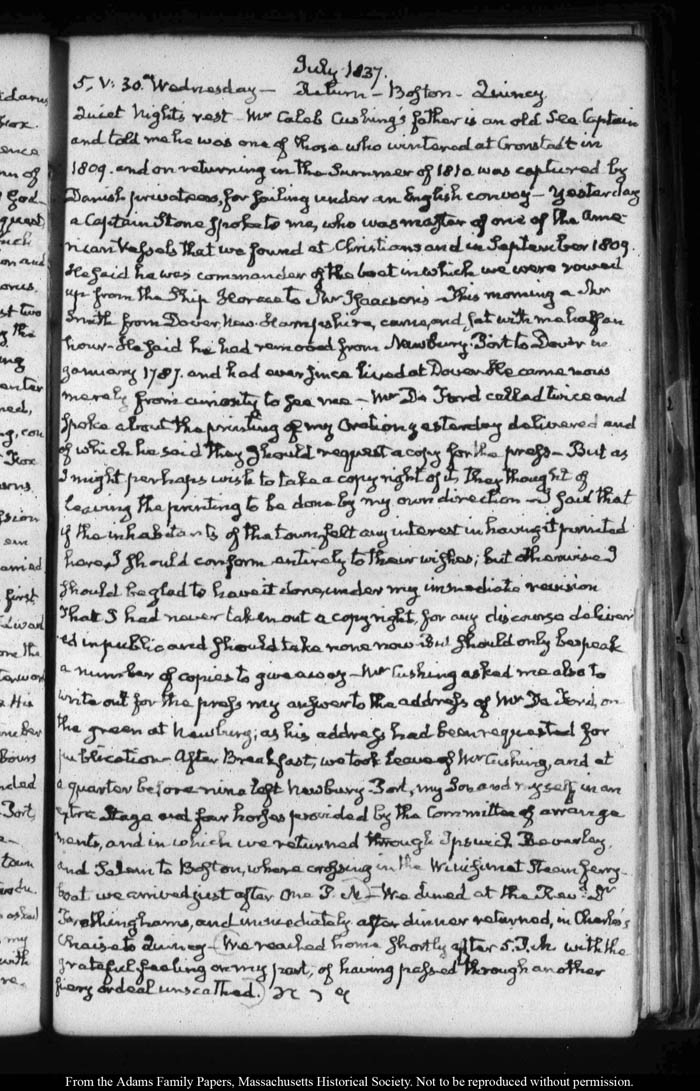 July 1837.
5. V: 30. Wednesday — Return — Boston — Quincy
Quiet Night's rest — Mr Caleb Cushing's father is an old Sea Captain
and told me he was one of those who wintered at Cronstadt in
1809. and on returning in the Summer of 1810 was captured by
Danish privateers, for sailing under an English convoy — Yesterday
a Captain Stone spoke to me, who was master of one of the Ame-
rican Vessels that we found at Christiansand in September 1809.
He said he was commander of the boat in which we were rowed
up from the Ship Horace to Mr Isaacson's — This morning a Mr
Smith from Dover, New-Hampshire, came, and sat with me half an
hour — He said he had removed from Newbury-Port to Dover in
January 1787. and had ever since lived at Dover. He came now
merely from curiosity to see me — Mr De Ford called twice and
spoke about the printing of my Oration yesterday delivered and
of which he said they should request a copy for the press — But as
I might perhaps wish to take a copyright of it, they thought of
leaving the printing to be done by my own direction — I said that
if the inhabitants of the town, felt any interest in having it printed
here, I should conform entirely to their wishes; but otherwise I
should be glad to have it done under my immediate revision
That I had never taken out a copyright, for any discourse deliver
ed in public and should take none now but should only bespeak
a number of copies to give away — Mr Cushing asked me also to
write out for the press my answer to the address of Mr De Ford, on
the green at Newbury; as his address had been requested for
publication — After Breakfast, we took leave of Mr Cushing, and at
a quarter before nine left Newbury-Port, my Son and myself in an
extra Stage and four horses provided by the Committee of arrange
ments, and in which we returned through Ipswich Beverley,
and Salem to Boston, where crossing in the Winisimet Steam ferry-
boat we arrived just after One P.M — We dined at the Revd. Dr
Frothingham's, and immediately after dinner returned, in Charles's
Chaise to Quincy — We reached home shortly after 5. P.M. with the
grateful feeling on my part, of having passed through another
fiery ordeal unscathed.
idams
ence
nn of
and
st two
the
ing
enter
ned,
ssion
first
one the
His
Bours
Port,
town
asked
my
with
From the Adams Family Papers, Massachusetts Historical Society. Not to be reproduced without permission.